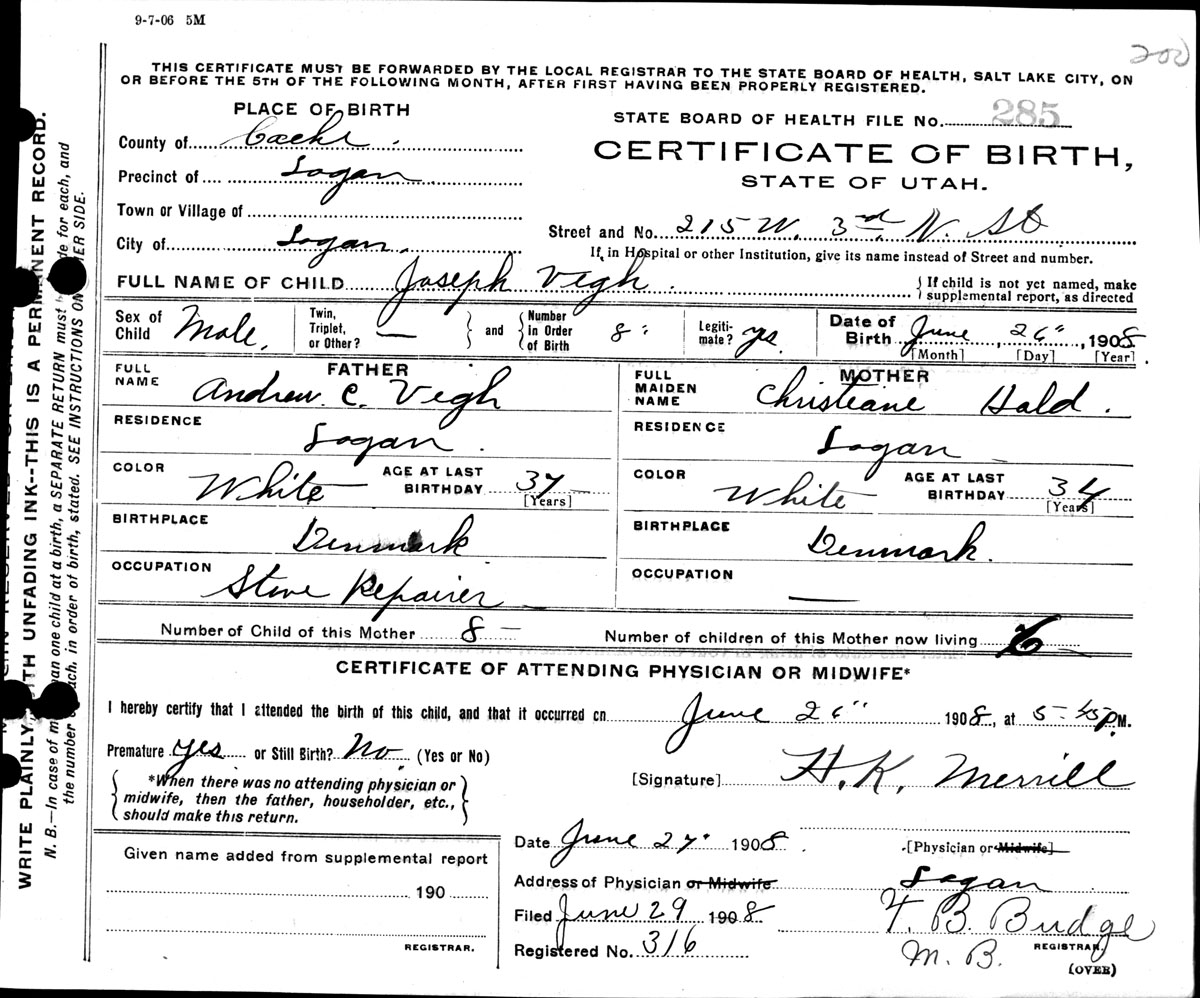 9-7-06 5M
200
THIS CERTIFICATE MUST BE FORWARDED BY THE LOCAL REGISTRAR TO THE STATE BOARD OF HEALTH, SALT LAKE CITY, ON
OR BEFORE THE 5TH OF THE FOLLOWING MONTH, AFTER FIRST HAVING BEEN PROPERLY REGISTERED.
PLACE OF BIRTH
County of Cache.
Precinct of Logan
Town or Village of
City of Logan.
STATE BOARD OF HEALTH FILE No. 285
CERTIFICATE OF BIRTH,
STATE OF UTAH.
Street and No. 215 W. 3rd. N. St
If, in Hospital or other Institution, give its name instead of Street and number.
FULL NAME OF CHILD Joseph Vegh. { If child is not yet named, make
supplemental report, as directed
Sex of Child Male.
Twin, Triplet, or Other? — } and { Number in Order of Birth 8"
Legitimate? yes
Date of Birth June, 26", 1908
[Month] [Day] [Year]
FATHER
FULL NAME Andrew C. Vegh
RESIDENCE Logan.
COLOR White AGE AT LAST BIRTHDAY 37 [Years]
BIRTHPLACE Denmark
OCCUPATION Stove Repairer
MOTHER
FULL MAIDEN NAME Christiane Hald.
RESIDENCE Logan
COLOR White AGE AT LAST BIRTHDAY 34 [Years]
BIRTHPLACE Denmark.
OCCUPATION —
Number of Child of this Mother 8 – Number of children of this Mother now living 6
CERTIFICATE OF ATTENDING PHYSICIAN OR MIDWIFE*
I hereby certify that I attended the birth of this child, and that it occurred on June 26" 1908, at 5-45 P.M.
Premature yes or Still Birth? No. (Yes or No)
{ *When there was no attending physician or
midwife, then the father, householder, etc.,
should make this return. }
[Signature] H. K. Merrill
[Physician or Midwife]
Given name added from supplemental report
190
REGISTRAR.
Date June 27" 1908.
Address of Physician or Midwife Logan
Filed June 29 1908 F. B. Budge
Registered No. 316 M. B. REGISTRAR.
(OVER)
WRITE PLAINLY, WITH UNFADING INK--THIS IS A PERMANENT RECORD.
N. B.—In case of more than one child at a birth, a SEPARATE RETURN must be made for each, and
the number of each, in order of birth, stated. SEE INSTRUCTIONS ON OTHER SIDE.